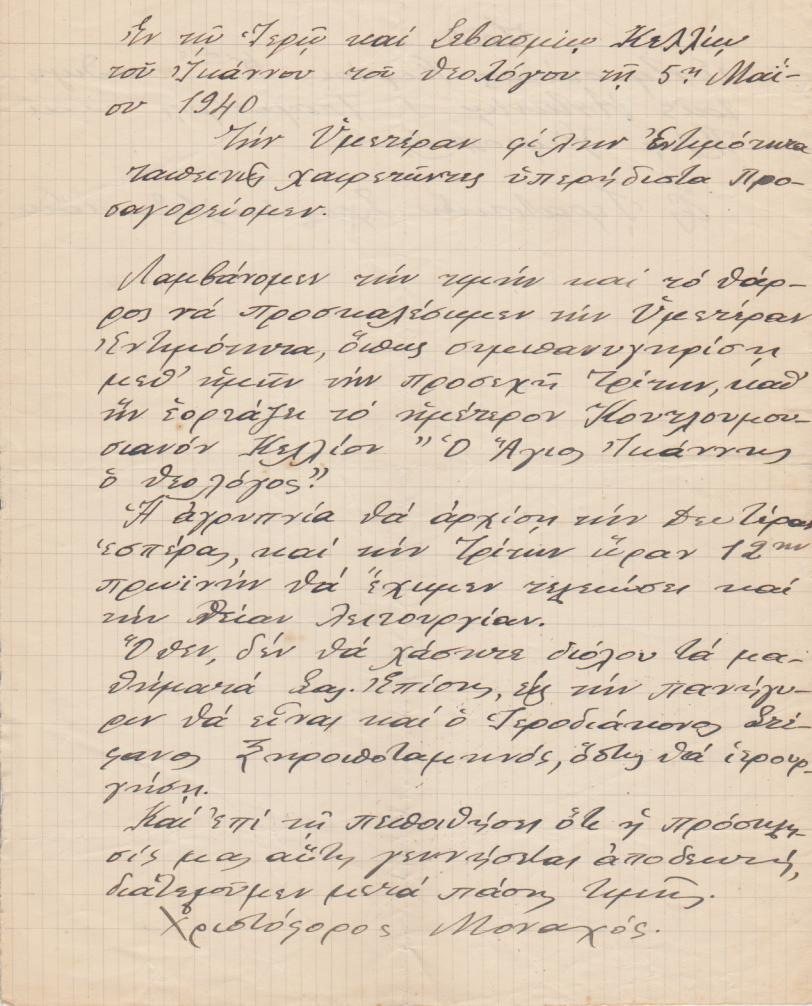 Ἐν τῇ Ἱερῷ καί Σεβασμίῳ Κελλίῳ
τοῦ Ἰωάννου τοῦ Θεολόγου τῇ 5ῃ Μαΐ-
ου 1940
Τήν Ὑμετέραν φίλην Ἐντιμότητα
ταπεινῶς χαιρετῶντες ὑπερήδιστα προ-
σαγορεύομεν.
Λαμβάνομεν τήν τιμήν καί τό θάρ-
ρος νά προσκαλέσωμεν τήν Ὑμετέραν
Ἐντιμότητα, ὅπως συμπανυγηρίσῃ
μεθ' ἡμῶν τήν προσεχῆ Τρίτην, καθ'
ἥν ἑορτάζει τό ἡμέτερον Κουτλουμου-
σιανόν Κελλίον "Ὁ Ἅγιος Ἰωάννης
ὁ Θεολόγος"
Ἡ ἀγρυπνία θά ἀρχίσῃ τήν Δευτέραν
ἑσπέρας, καί τήν Τρίτην ὥραν 12ην
πρωϊνήν θά ἔχωμεν τελειώσει καί
τήν Θείαν λειτουργίαν.
Ὅθεν, δέν θά χάσητε διόλου τά μα-
θήματά Σας. Ἐπίσης, εἰς τήν πανήγυ-
ριν θά εἶναι καί ὁ Ἱεροδιάκονος Στέ-
φανος Ξηροποταμηνός, ὅστις θά ἱερουρ-
γήσῃ.
Καί ἐπί τῇ πεποιθήσει ὅτι ἡ πρόσκλη-
σίς μας αὕτη γεννήσεται ἀποδεκτή,
διατελοῦμεν μετά πάσης τιμῆς.
Χριστόφορος Μοναχός.